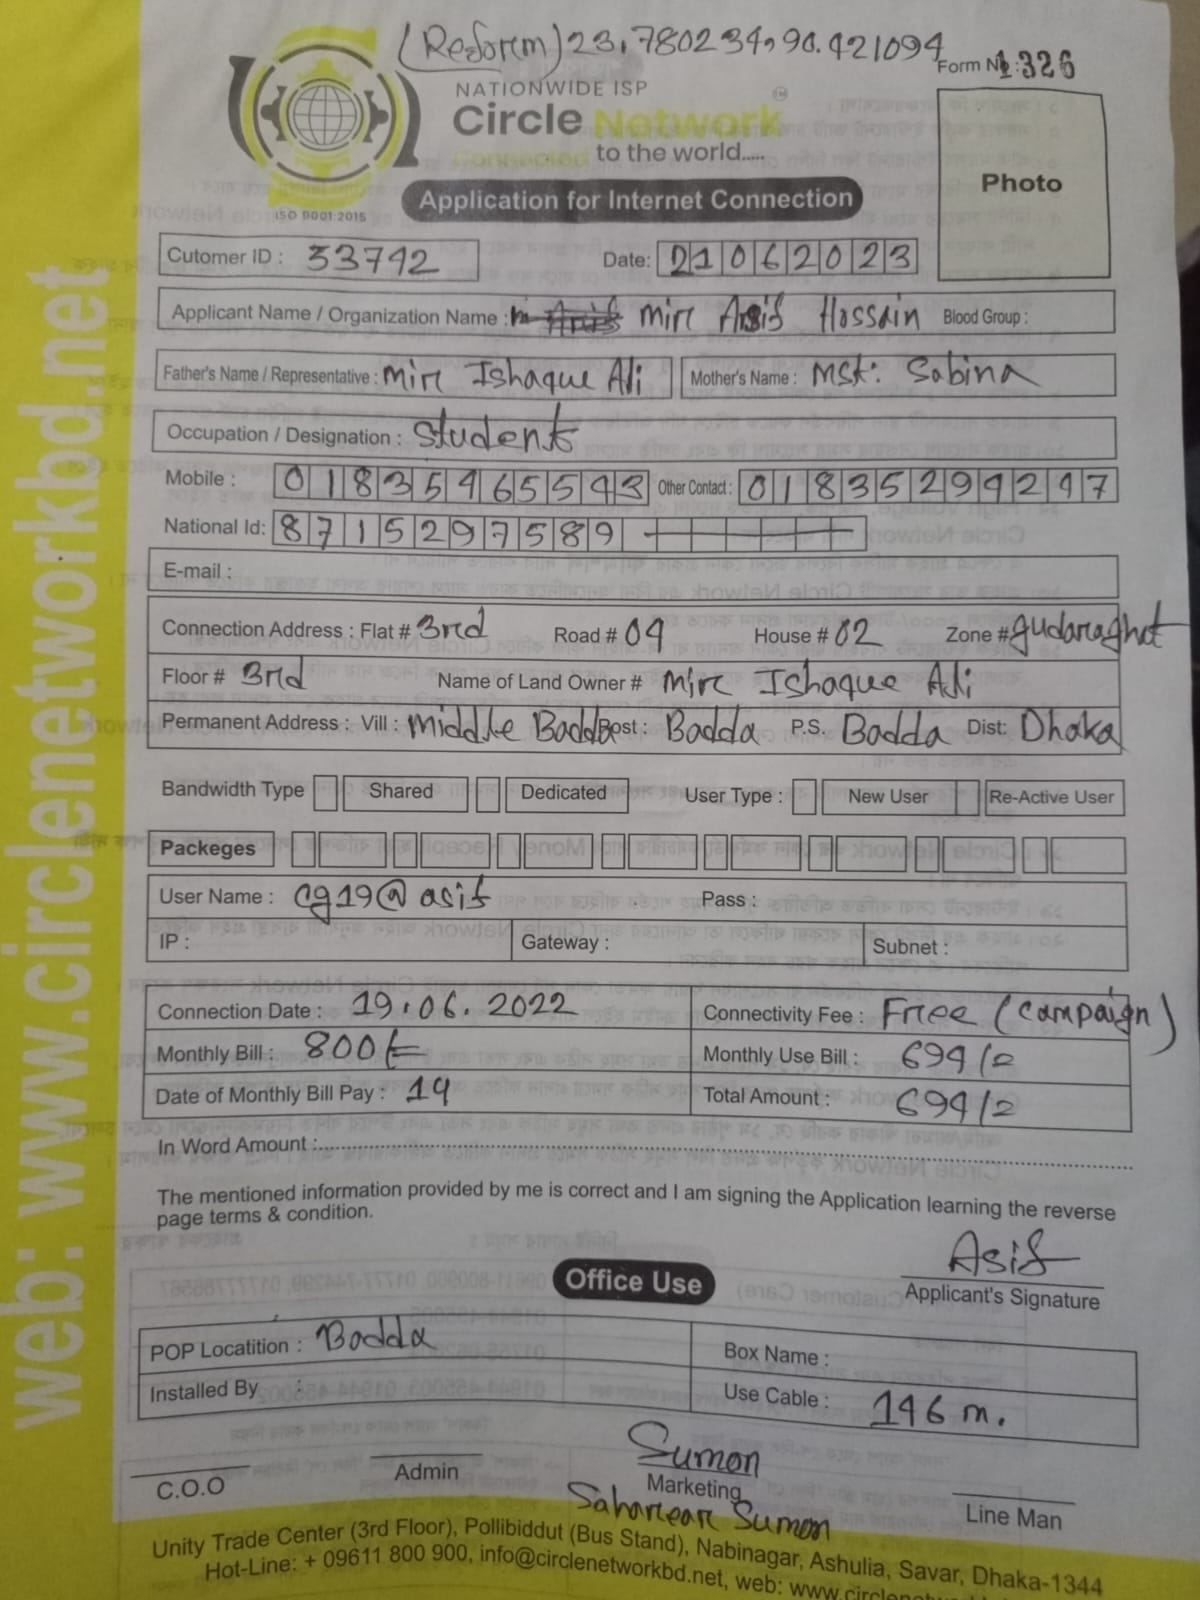 (Reform) 23.780234, 90.421094
Form No: 1326
NATIONWIDE ISP
Circle Network
Connected to the world.....
ISO 9001:2015
Application for Internet Connection
Photo
Cutomer ID : 33742 Date: 21062023
Applicant Name / Organization Name : Mir Asif Hossain Blood Group :
Father's Name / Representative : Mir Ishaque Ali Mother's Name : Mst: Sabina
Occupation / Designation : Student
Mobile : 01835465543 Other Contact : 01835294247
National Id: 8715297589
E-mail :
Connection Address : Flat # 3rd Road # 04 House # 02 Zone # gudaraghat
Floor # 3rd Name of Land Owner # Mir Ishaque Ali
Permanent Address : Vill : Middle Badda Post : Badda P.S. Badda Dist: Dhaka
Bandwidth Type Shared Dedicated User Type : New User Re-Active User
Packeges
User Name : cg19@asif Pass :
IP : Gateway : Subnet :
Connection Date : 19.06.2022 Connectivity Fee : Free (campaign)
Monthly Bill : 800/= Monthly Use Bill : 694/=
Date of Monthly Bill Pay : 14 Total Amount : 694/=
In Word Amount :
The mentioned information provided by me is correct and I am signing the Application learning the reverse
page terms & condition.
Asif
Applicant's Signature
Office Use
POP Locatition : Badda Box Name :
Installed By : Use Cable : 146 m.
Sumon
C.O.O Admin Marketing Line Man
Saharear Sumon
Unity Trade Center (3rd Floor), Pollibiddut (Bus Stand), Nabinagar, Ashulia, Savar, Dhaka-1344
Hot-Line: + 09611 800 900, info@circlenetworkbd.net, web: www.circlenetwork
web: www.circlenetworkbd.net